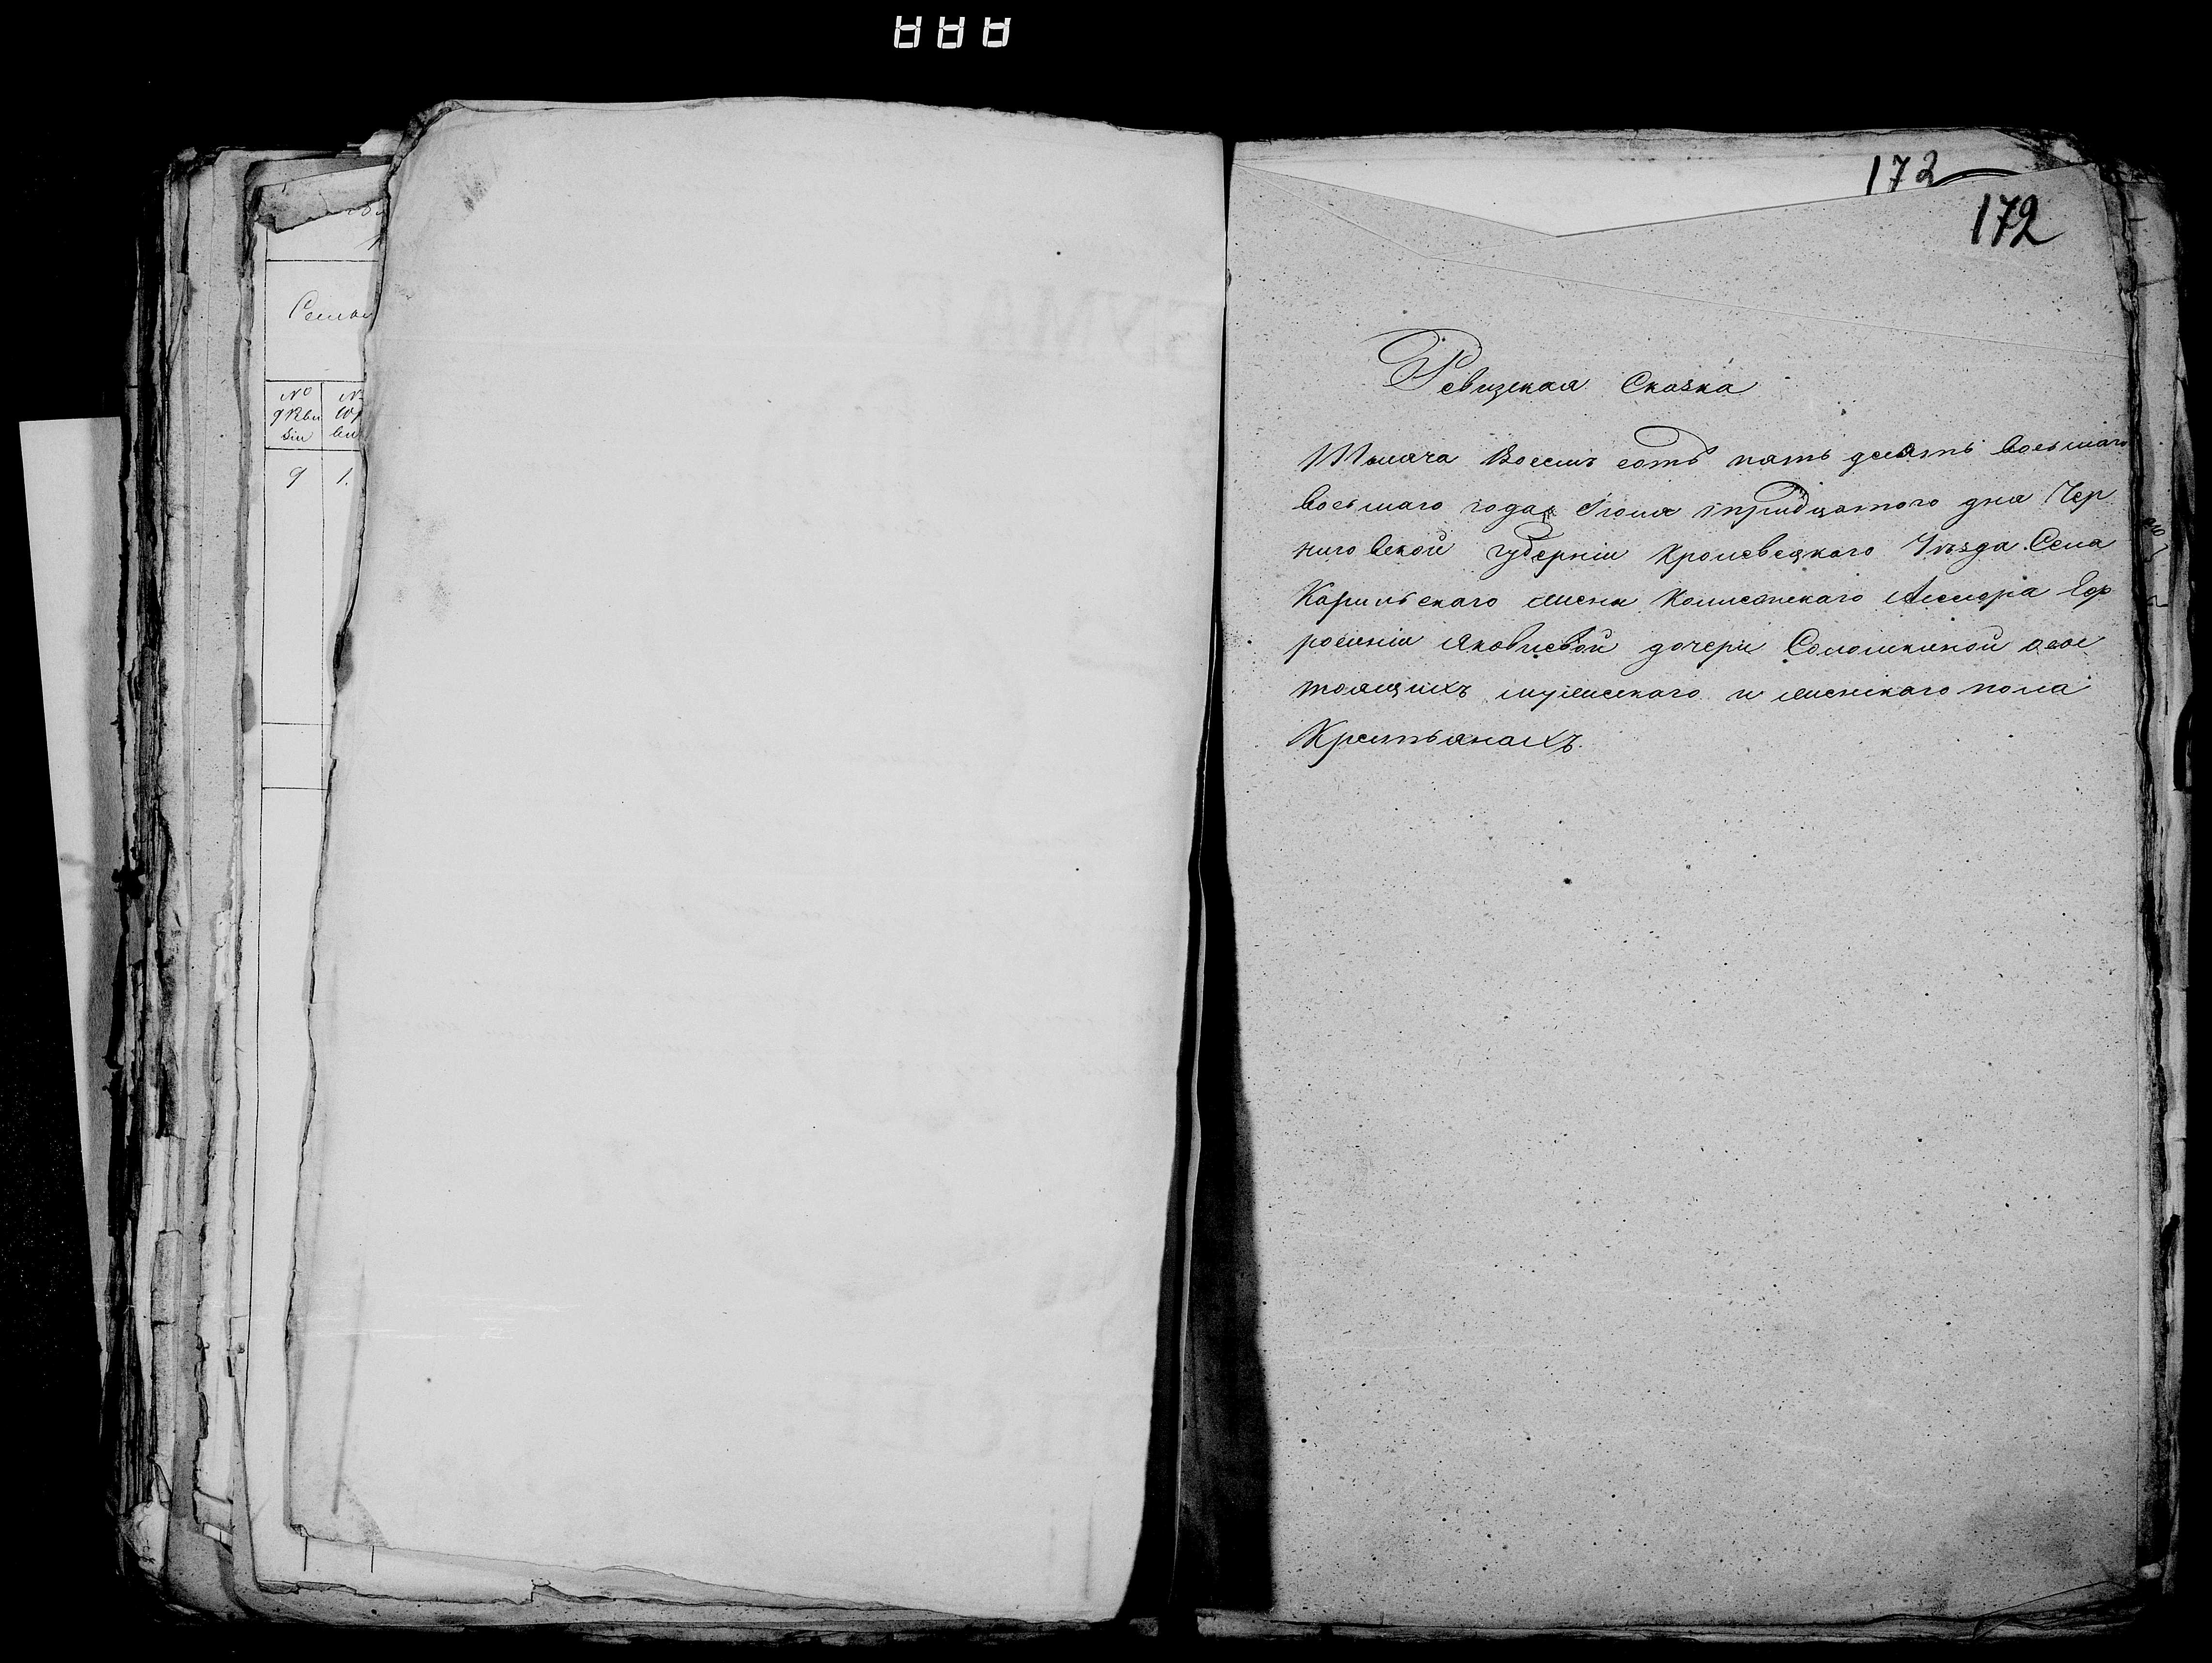 172
172
Ревизская Сказка
Тысяча восемь сотъ пять десятъ восьмаго
восьмаго года Июня тридцатого дня Чер
ниговской губерніи Кролевецкаго Уѣзда Села
Карильскаго жены Колежскаго Асесора Еф
росиніи Яковлевой дочери Соломкиной о сос
тоящихъ мужескаго и женскаго пола
Крестьянахъ.
№
№
9 Реви
зіи
9 1.